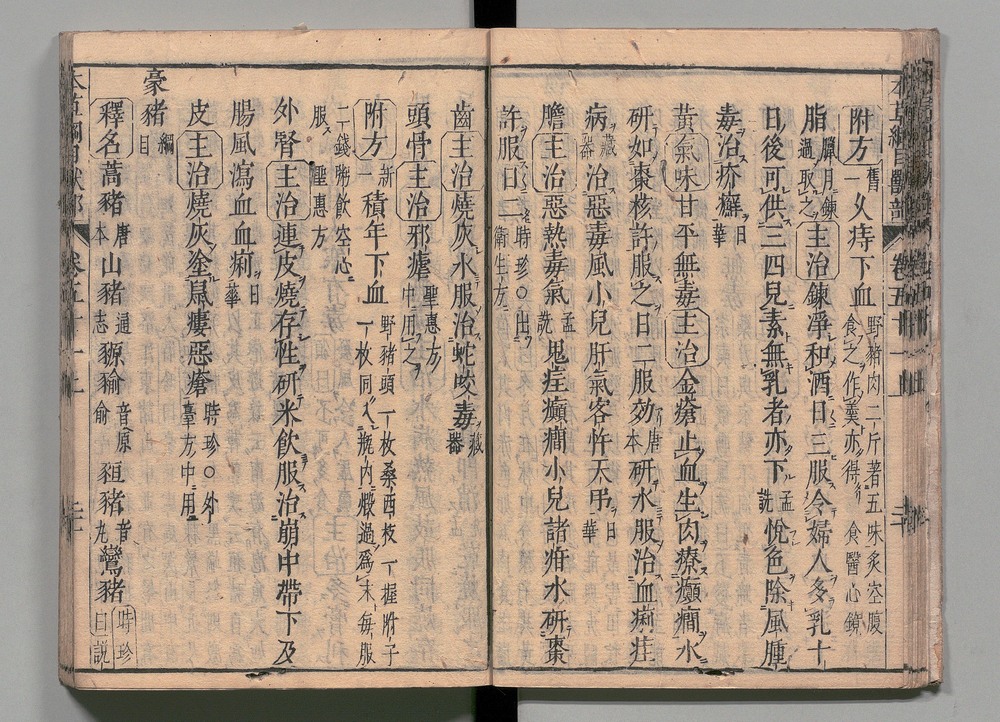 本草綱目獸部 卷五十一上
附方舊一 久痔下血 野豬肉二斤著五味炙空腹食之作羹亦得 食醫心鏡
脂臘月鍊過取之 主治 鍊淨和酒日三服令婦人多乳十
日後可供三四兒素無乳者亦下孟詵 悅色除風腫
毒治疥癬日華
黃 氣味 甘平無毒 主治 金瘡止血生肉療癲癇水
研如棗核許服之日二服效唐本 研水服治血痢疰
病藏器 治惡毒風小兒疳氣客忤天吊日華
膽 主治 惡熱毒氣孟詵 鬼疰癲癇小兒諸疳水研棗
許服日二時珍○出衛生方
齒 主治 燒灰水服治蛇咬毒藏器
頭骨 主治 邪瘧聖惠方中用之
附方新一 積年下血 野豬頭一枚桑西枝一握附子一枚同入瓶內煅過為末每服
二錢粥飲空心服 聖惠方
外腎 主治 連皮燒存性研米飲服治崩中帶下及
腸風瀉血血痢日華
皮 主治 燒灰塗鼠瘻惡瘡時珍○外臺方中用
豪豬綱目
釋名 蒿豬唐本 山豬通志 豲貐音原俞 狟豬音丸 鸞豬時珍曰說
本草綱目獸部 卷五十一上